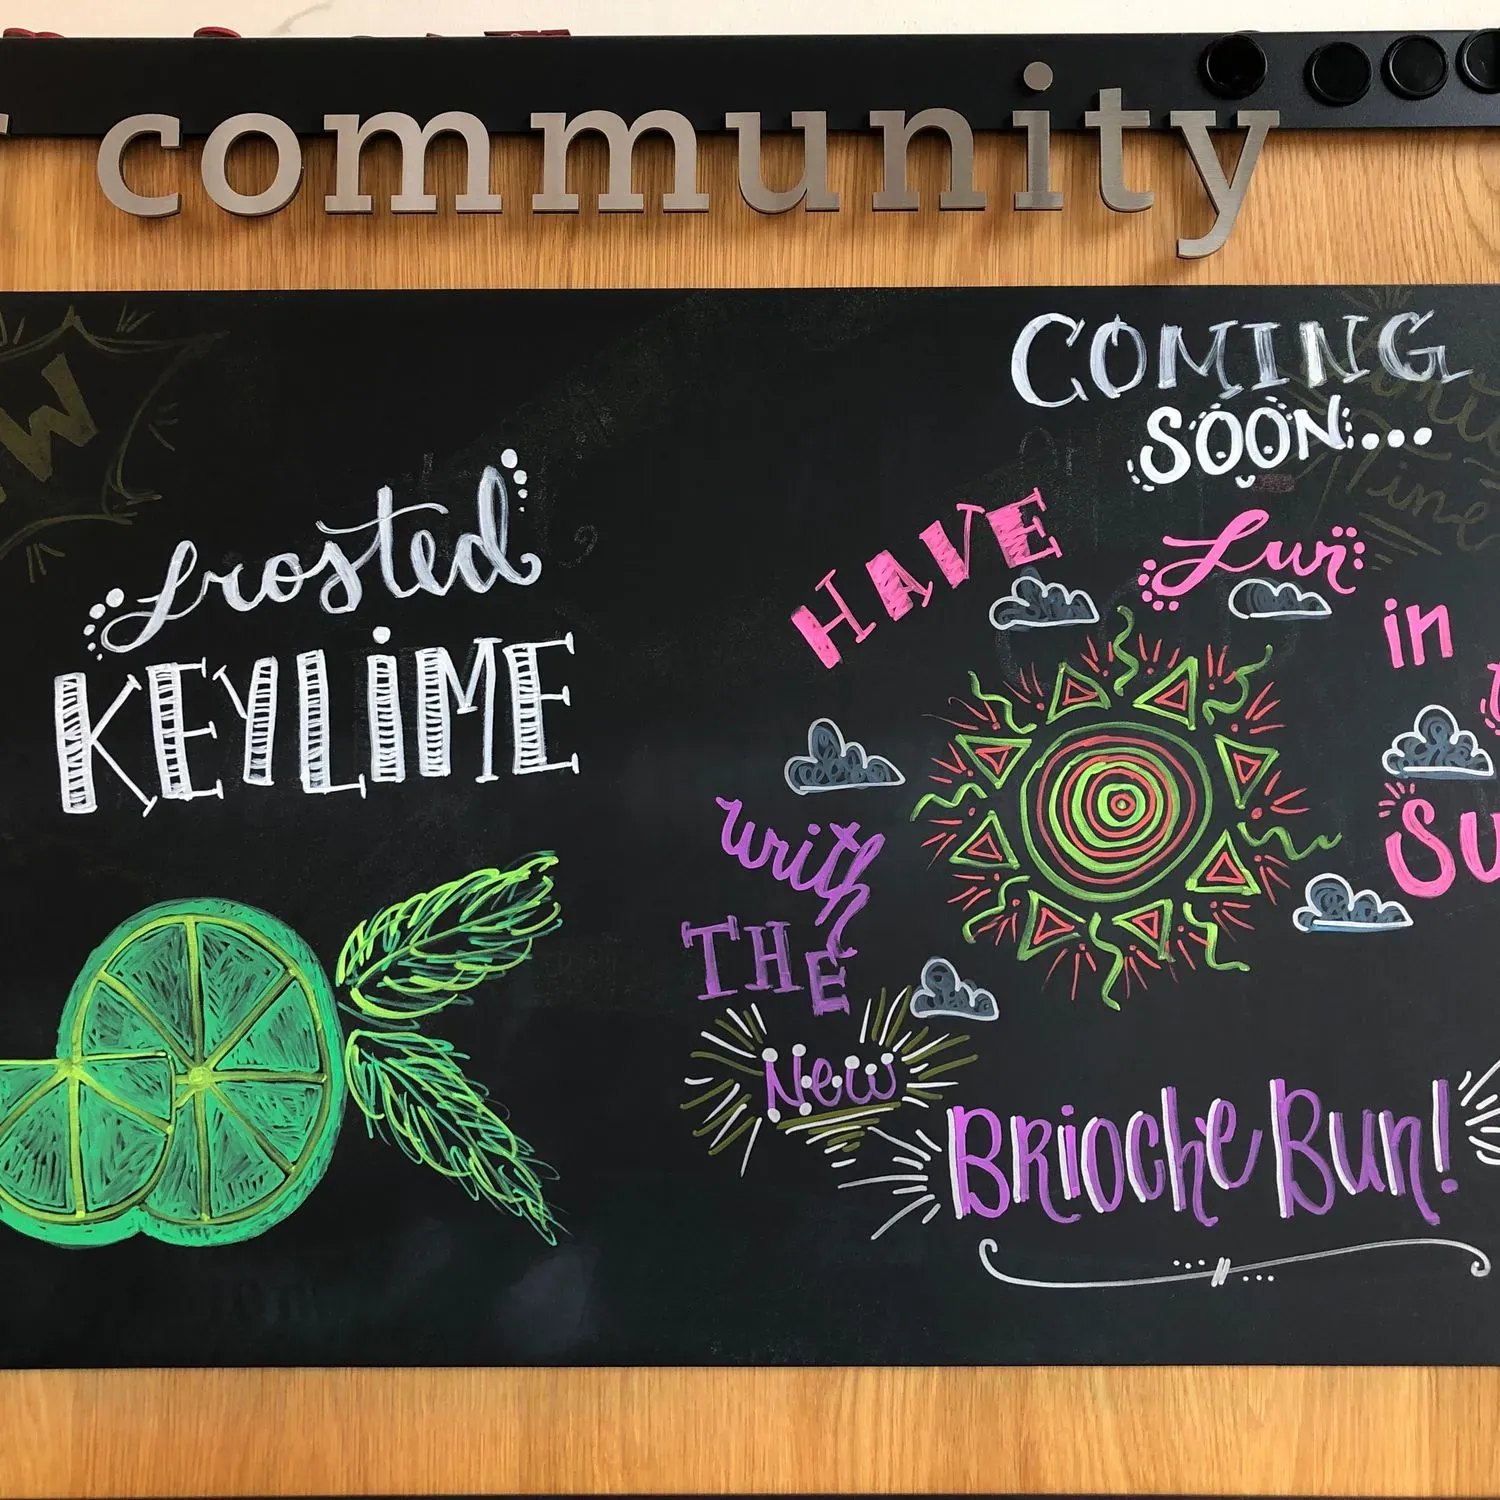 community
Frosted
KEYLiME
COMING
SOON...
HAVE Fun in
SU
with
THE
New
BRioche Bun!